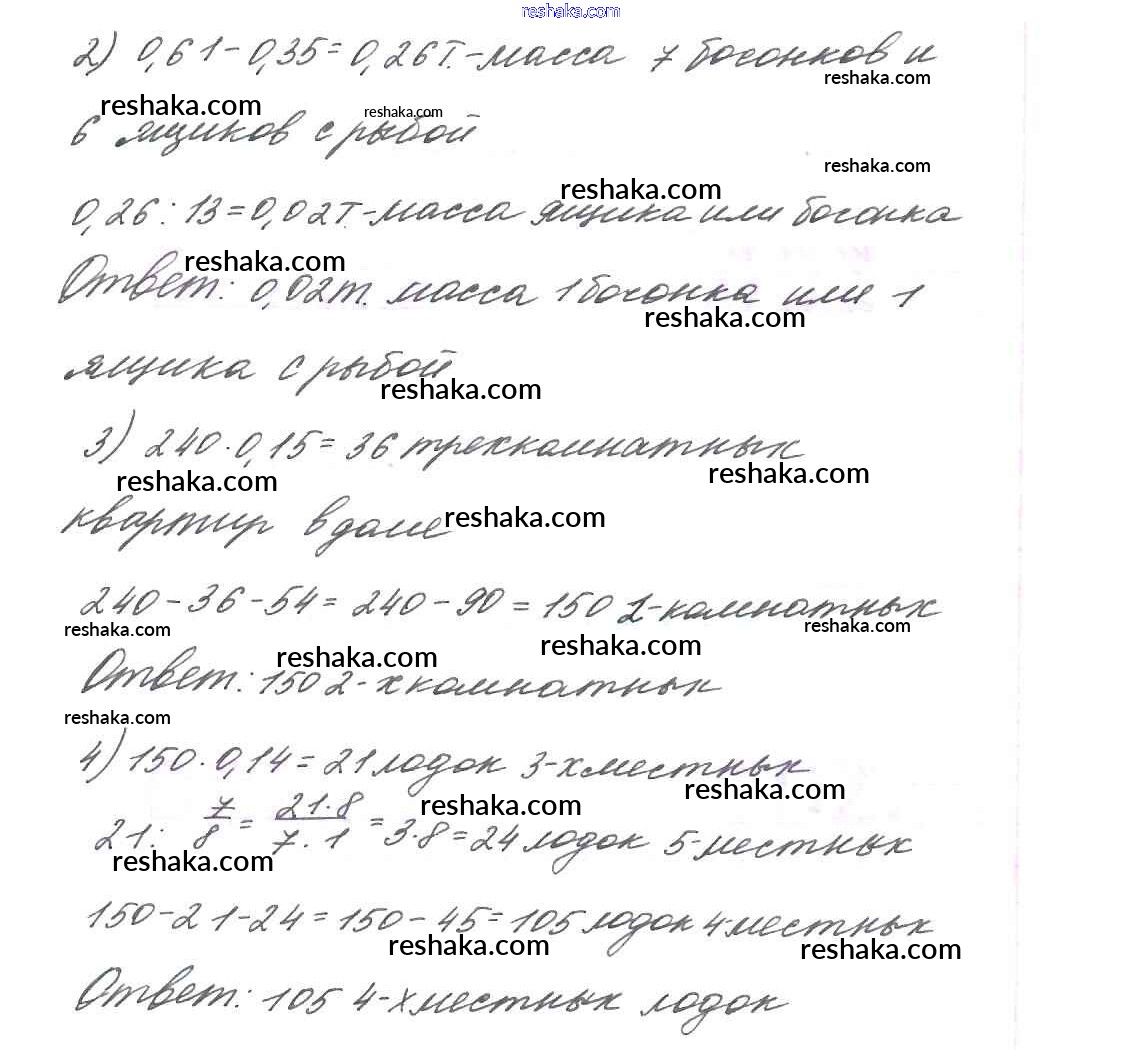 reshaka.com
2) 0,61-0,35=0,26т.-масса 7 бочонков и
reshaka.com
reshaka.com reshaka.com
6 ящиков с рыбой
reshaka.com
reshaka.com
0,26:13=0,02т.-масса ящика или бочонка
reshaka.com
Ответ: 0,02т. масса 1 бочонка или 1
reshaka.com
ящика с рыбой
reshaka.com
3) 240·0,15=36 трехкомнатных
reshaka.com reshaka.com
квартир в доме reshaka.com
240-36-54=240-90=150 2-комнатных
reshaka.com reshaka.com
reshaka.com reshaka.com
Ответ: 150 2-хкомнатных
reshaka.com
4) 150·0,14=21 лодок 3-хместных
reshaka.com reshaka.com
21: 7/8 = 21·8/7·1 =3·8=24 лодок 5-местных
reshaka.com
150-21-24=150-45=105 лодок 4местных
reshaka.com reshaka.com
Ответ: 105 4-хместных лодок